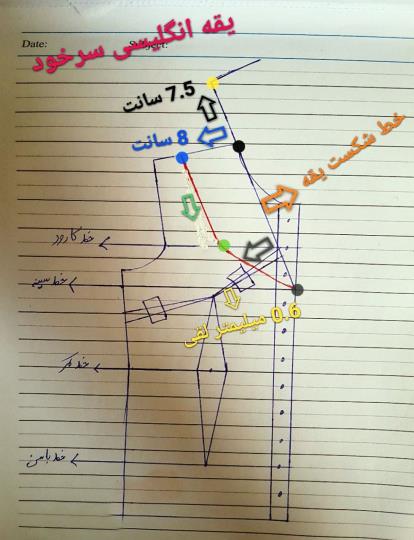 یقه انگلیسی سرخود
Date:
Subject:
7.5 سانت
8 سانت
خط شکست یقه
خط کارور
خط سینه
0.6 میلیمتر لقی
خط کمر
خط باسن